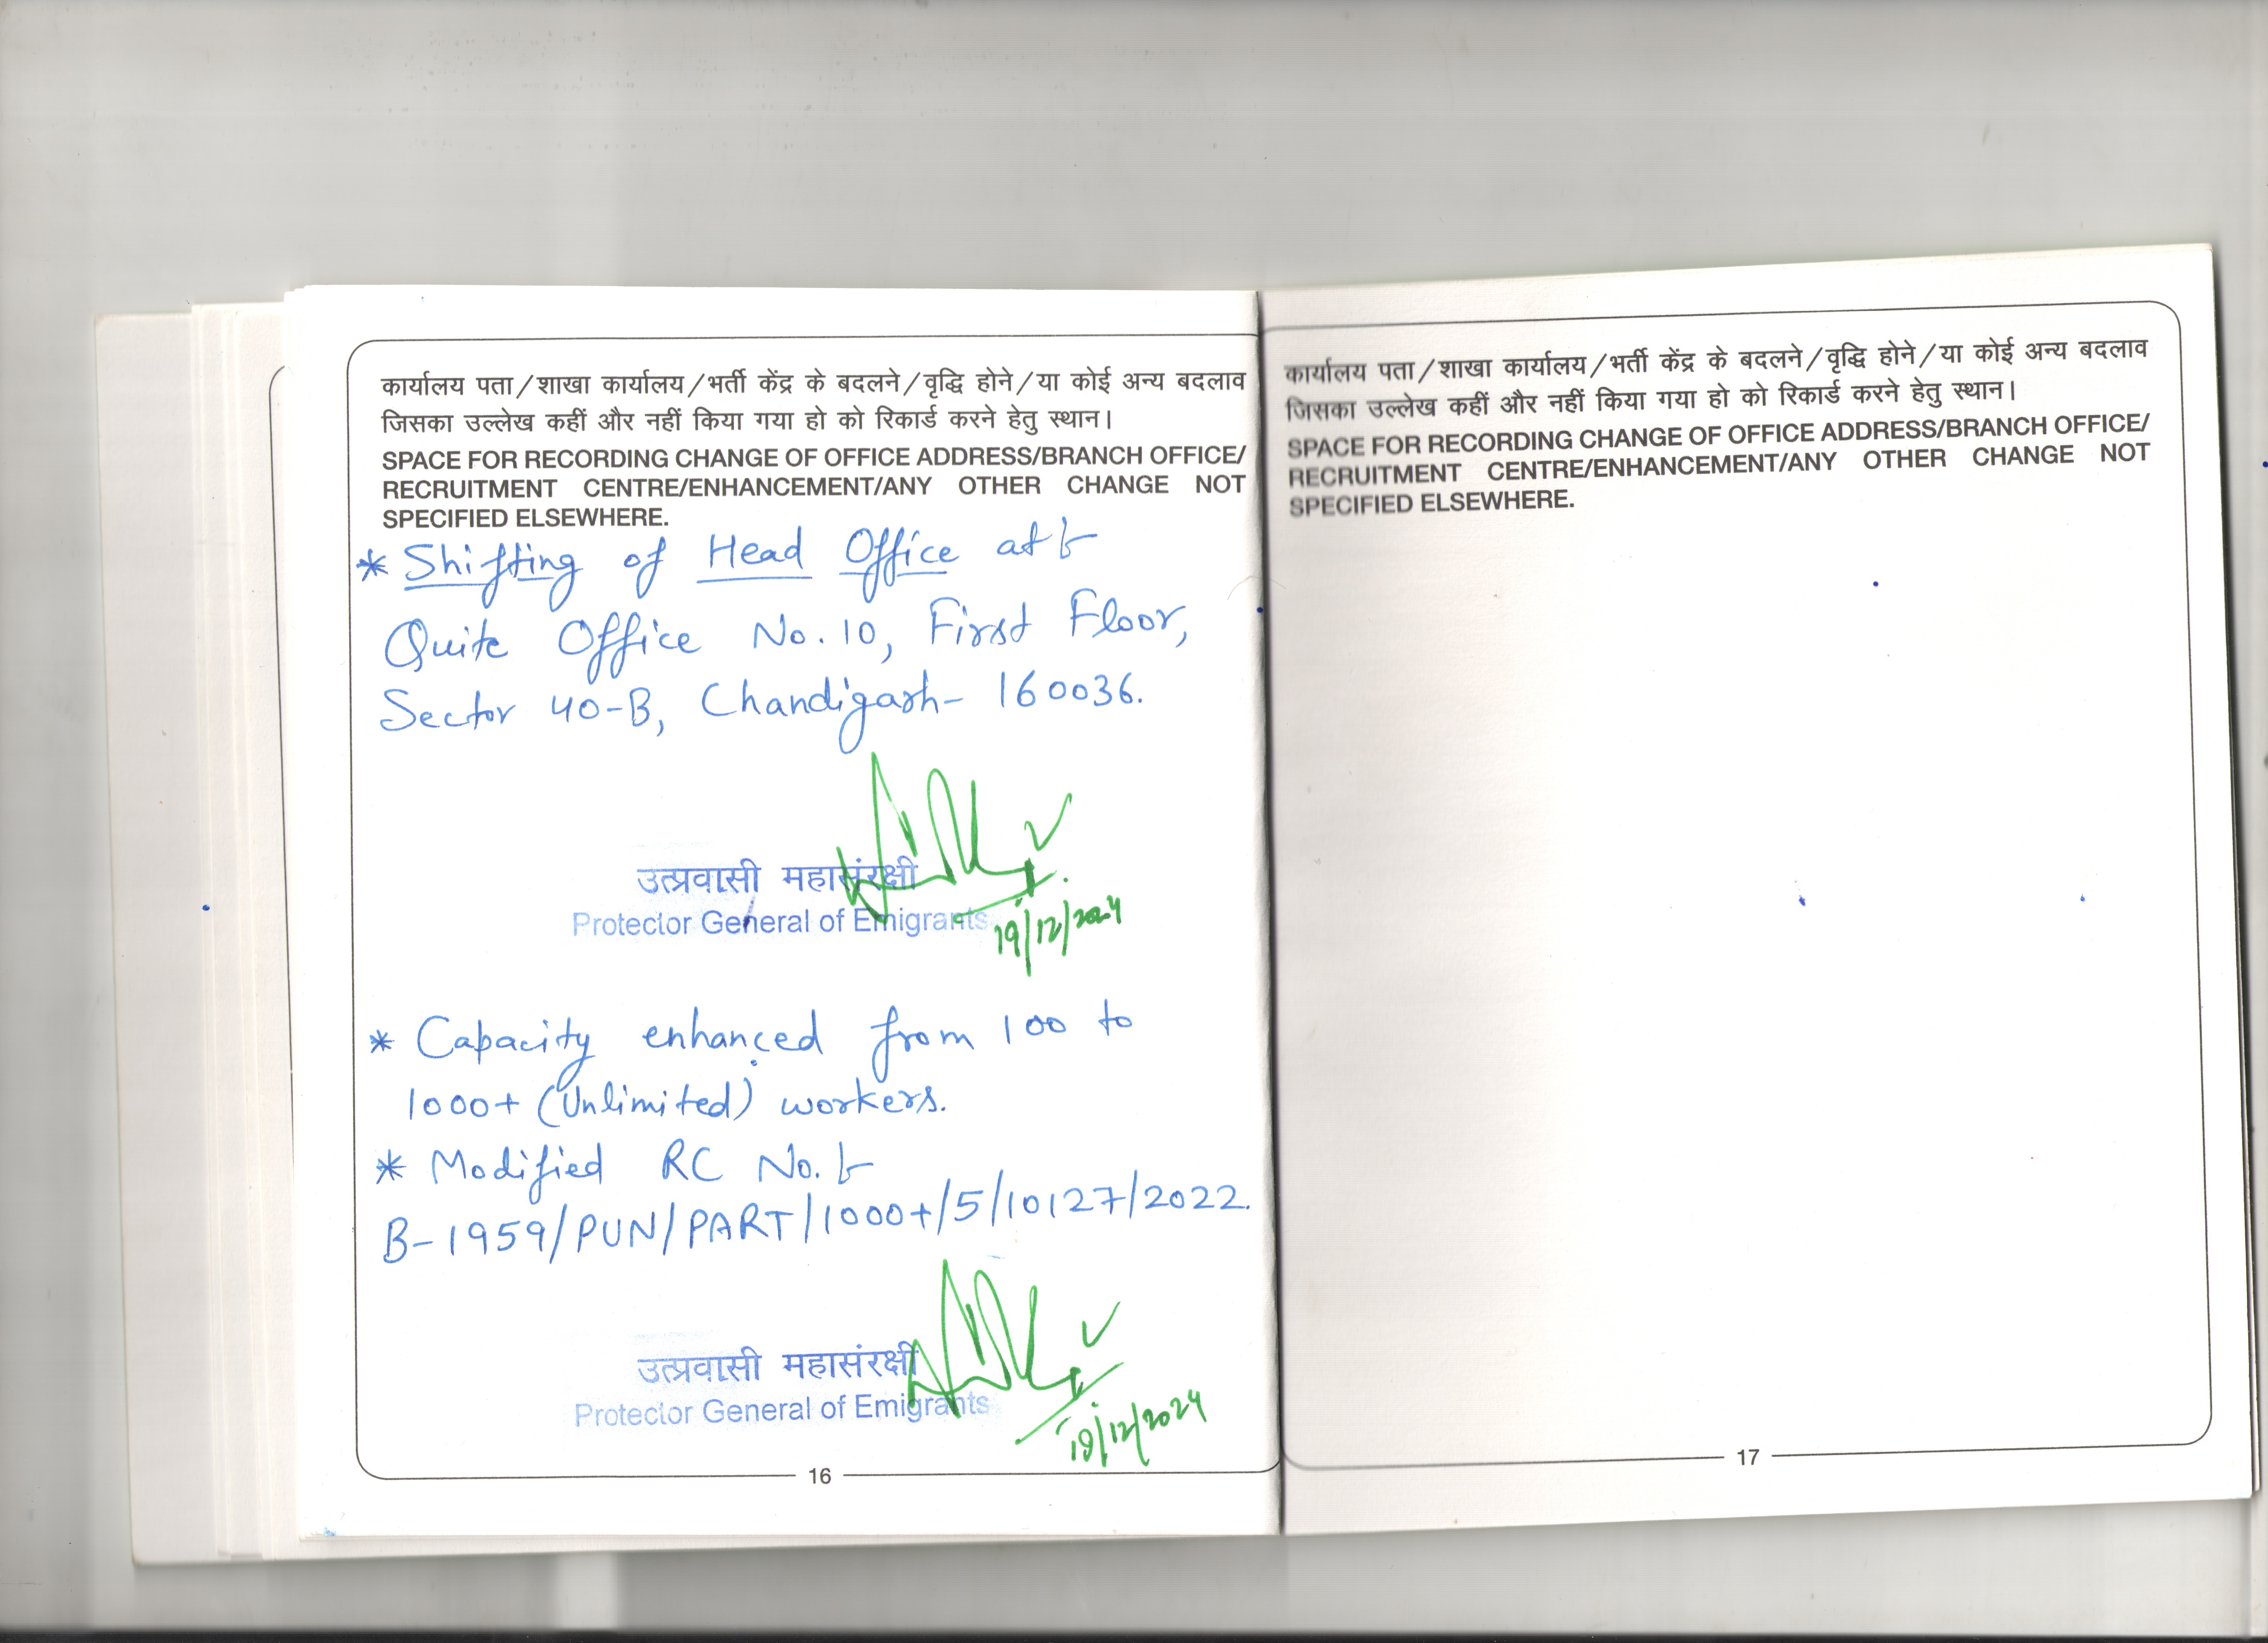 कार्यालय पता/शाखा कार्यालय/भर्ती केंद्र के बदलने/वृद्धि होने/या कोई अन्य बदलाव
जिसका उल्लेख कहीं और नहीं किया गया हो को रिकार्ड करने हेतु स्थान।
SPACE FOR RECORDING CHANGE OF OFFICE ADDRESS/BRANCH OFFICE/
RECRUITMENT CENTRE/ENHANCEMENT/ANY OTHER CHANGE NOT
SPECIFIED ELSEWHERE.
* Shifting of Head Office at :-
Quite Office No. 10, First Floor,
Sector 40-B, Chandigarh- 160036.
उत्प्रवासी महासंरक्षी
Protector General of Emigrants
19/12/2024
* Capacity enhanced from 100 to
1000+ (Unlimited) workers.
* Modified RC No. :-
B-1959/PUN/PART/1000+/5/10127/2022.
उत्प्रवासी महासंरक्षी
Protector General of Emigrants
19/12/2024
16
कार्यालय पता/शाखा कार्यालय/भर्ती केंद्र के बदलने/वृद्धि होने/या कोई अन्य बदलाव
जिसका उल्लेख कहीं और नहीं किया गया हो को रिकार्ड करने हेतु स्थान।
SPACE FOR RECORDING CHANGE OF OFFICE ADDRESS/BRANCH OFFICE/
RECRUITMENT CENTRE/ENHANCEMENT/ANY OTHER CHANGE NOT
SPECIFIED ELSEWHERE.
17